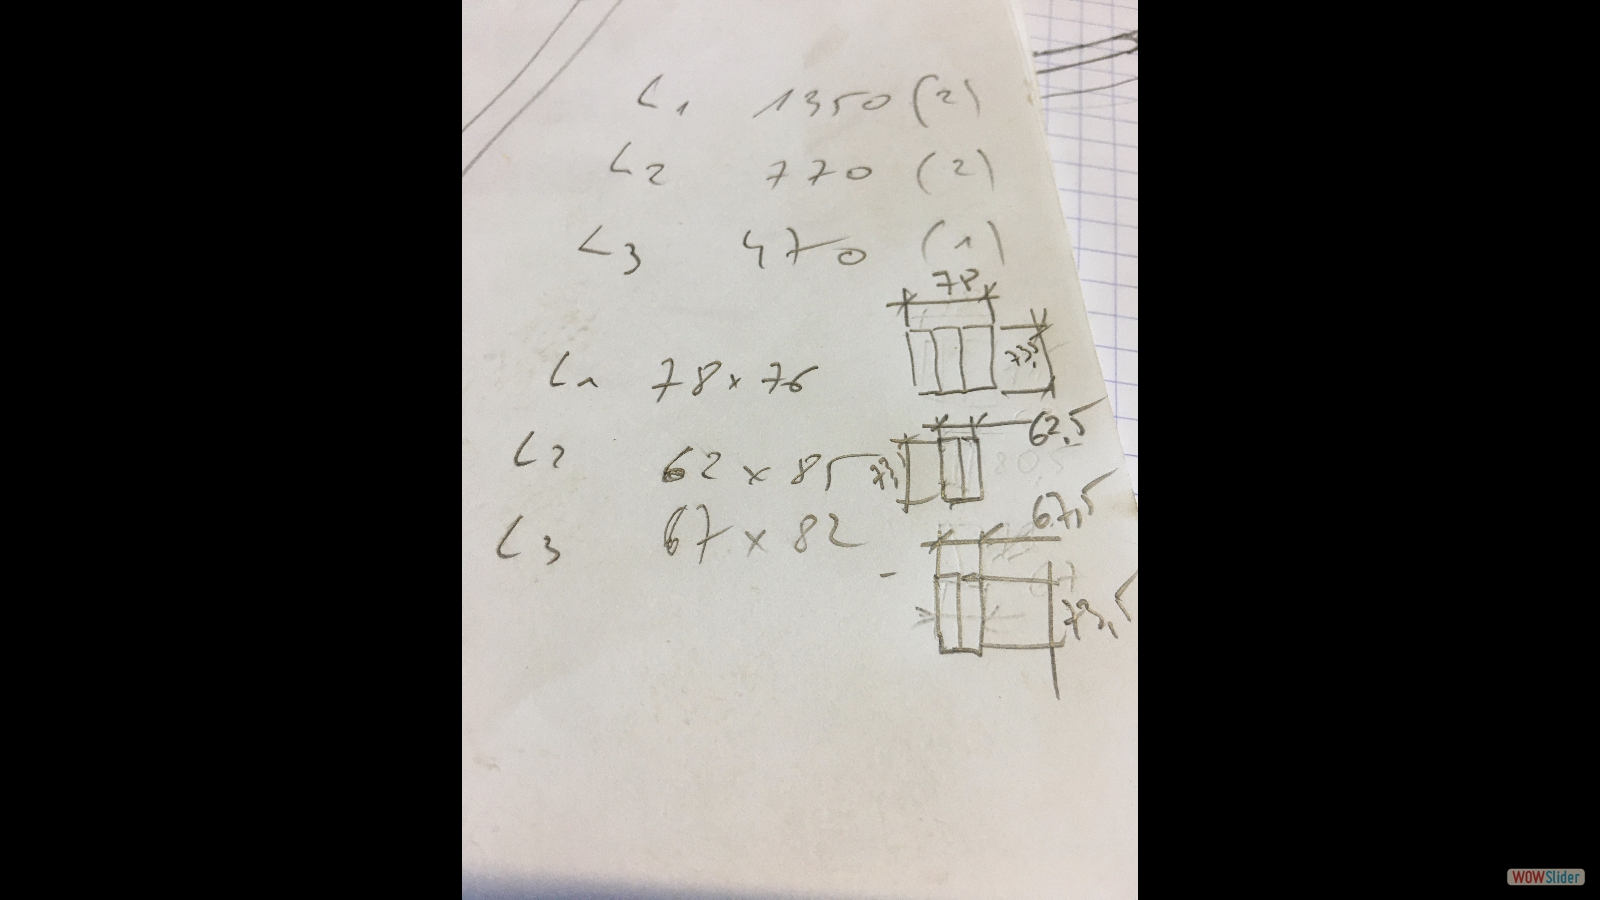 L1 1350 (2)
L2 770 (2)
L3 470 (1)
78
L1 78 x 76
73,5
62,5
L2 62 x 85
73,5
67,5
L3 67 x 82
73,5
WOWSlider